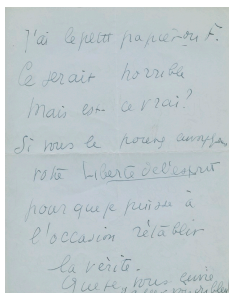 J'ai le petit papier sur F.
Ce serait horrible
mais est ce vrai ?
Si vous le pouvez envoyez
votre Liberté de l'esprit
pour que je puisse à
l'occasion rétablir
la vérité.
vous